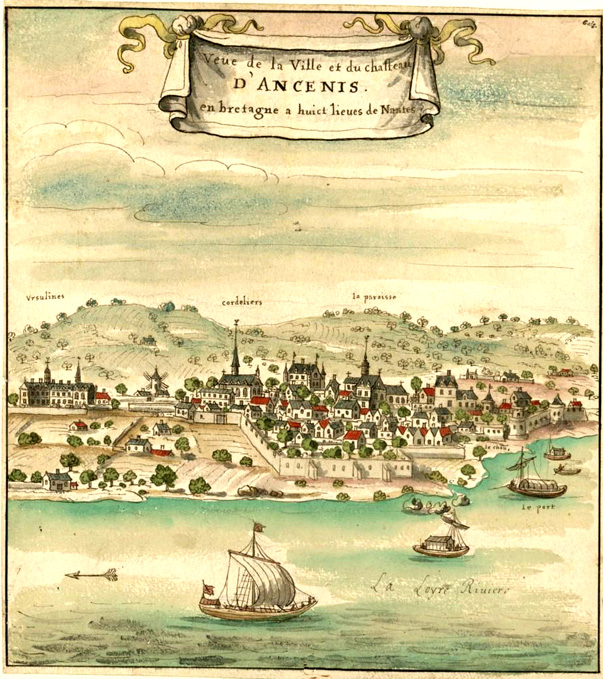 Veue de la Ville et du chasteau
D'ANCENIS.
en bretagne a huict lieues de Nantes.
Vrsulines
cordeliers
la paroisse
le port
La Loyre Riviere